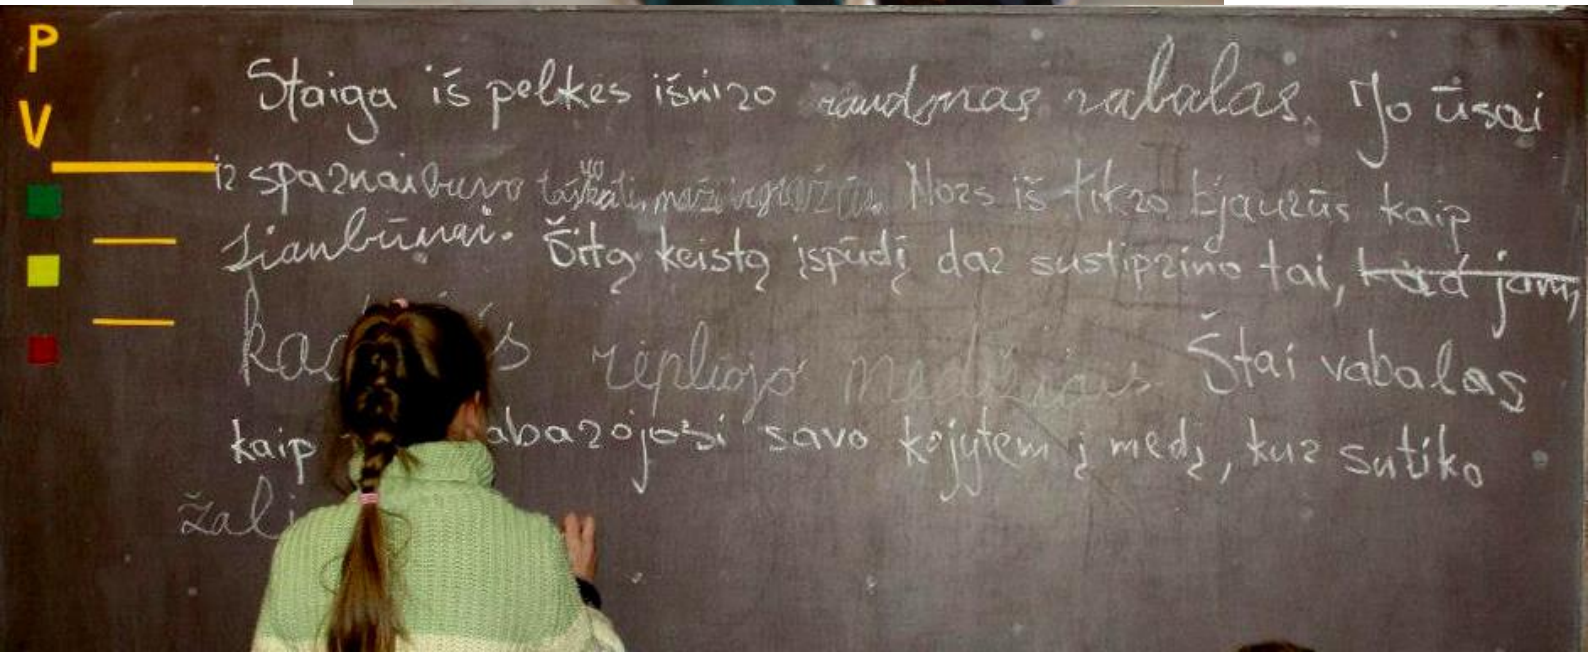 P
V
Staiga iš pelkės išniro raudonas vabalas. Jo ūsai
ir sparnai buvo taškuoti, maži ir gražūs. Nors iš tikro bjaurūs kaip
šianbūnai. Šitą keistą įspūdį dar sustiprino tai, kad jam,
rėpliojo medžiais Štai vabalas
kaip savo kojytėm į medį, kur sutiko